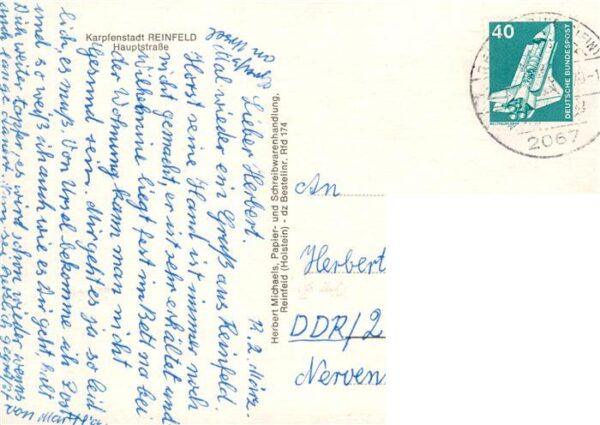 Karpfenstadt REINFELD
Hauptstraße
12. 2. März.
Lieber Herbert.
Mal wieder ein Gruß aus Reinfeld.
Horst seine Hand ist immer noch
nicht gemacht, er ist sehr erkältet und
Wilhelmine liegt fest im Bett na bei
der Wohnung kann man nicht
gesund sein. Mir geht es ja so leid
lich, es muß. Von Ursel bekomme ich Post
und so weiß ich auch wie es Dir geht, halt
Dich weiter tapfer es wird schon wieder wenns
auch lange dauert. Nun sei herzlich gegrüßt
von Martha
Herbert Michaels, Papier- und Schreibwarenhandlung,
Reinfeld (Holstein) - dz Bestellnr. Rfd 174
40
DEUTSCHE BUNDESPOST
2067
An
Herbert
DDR/2
Nerven